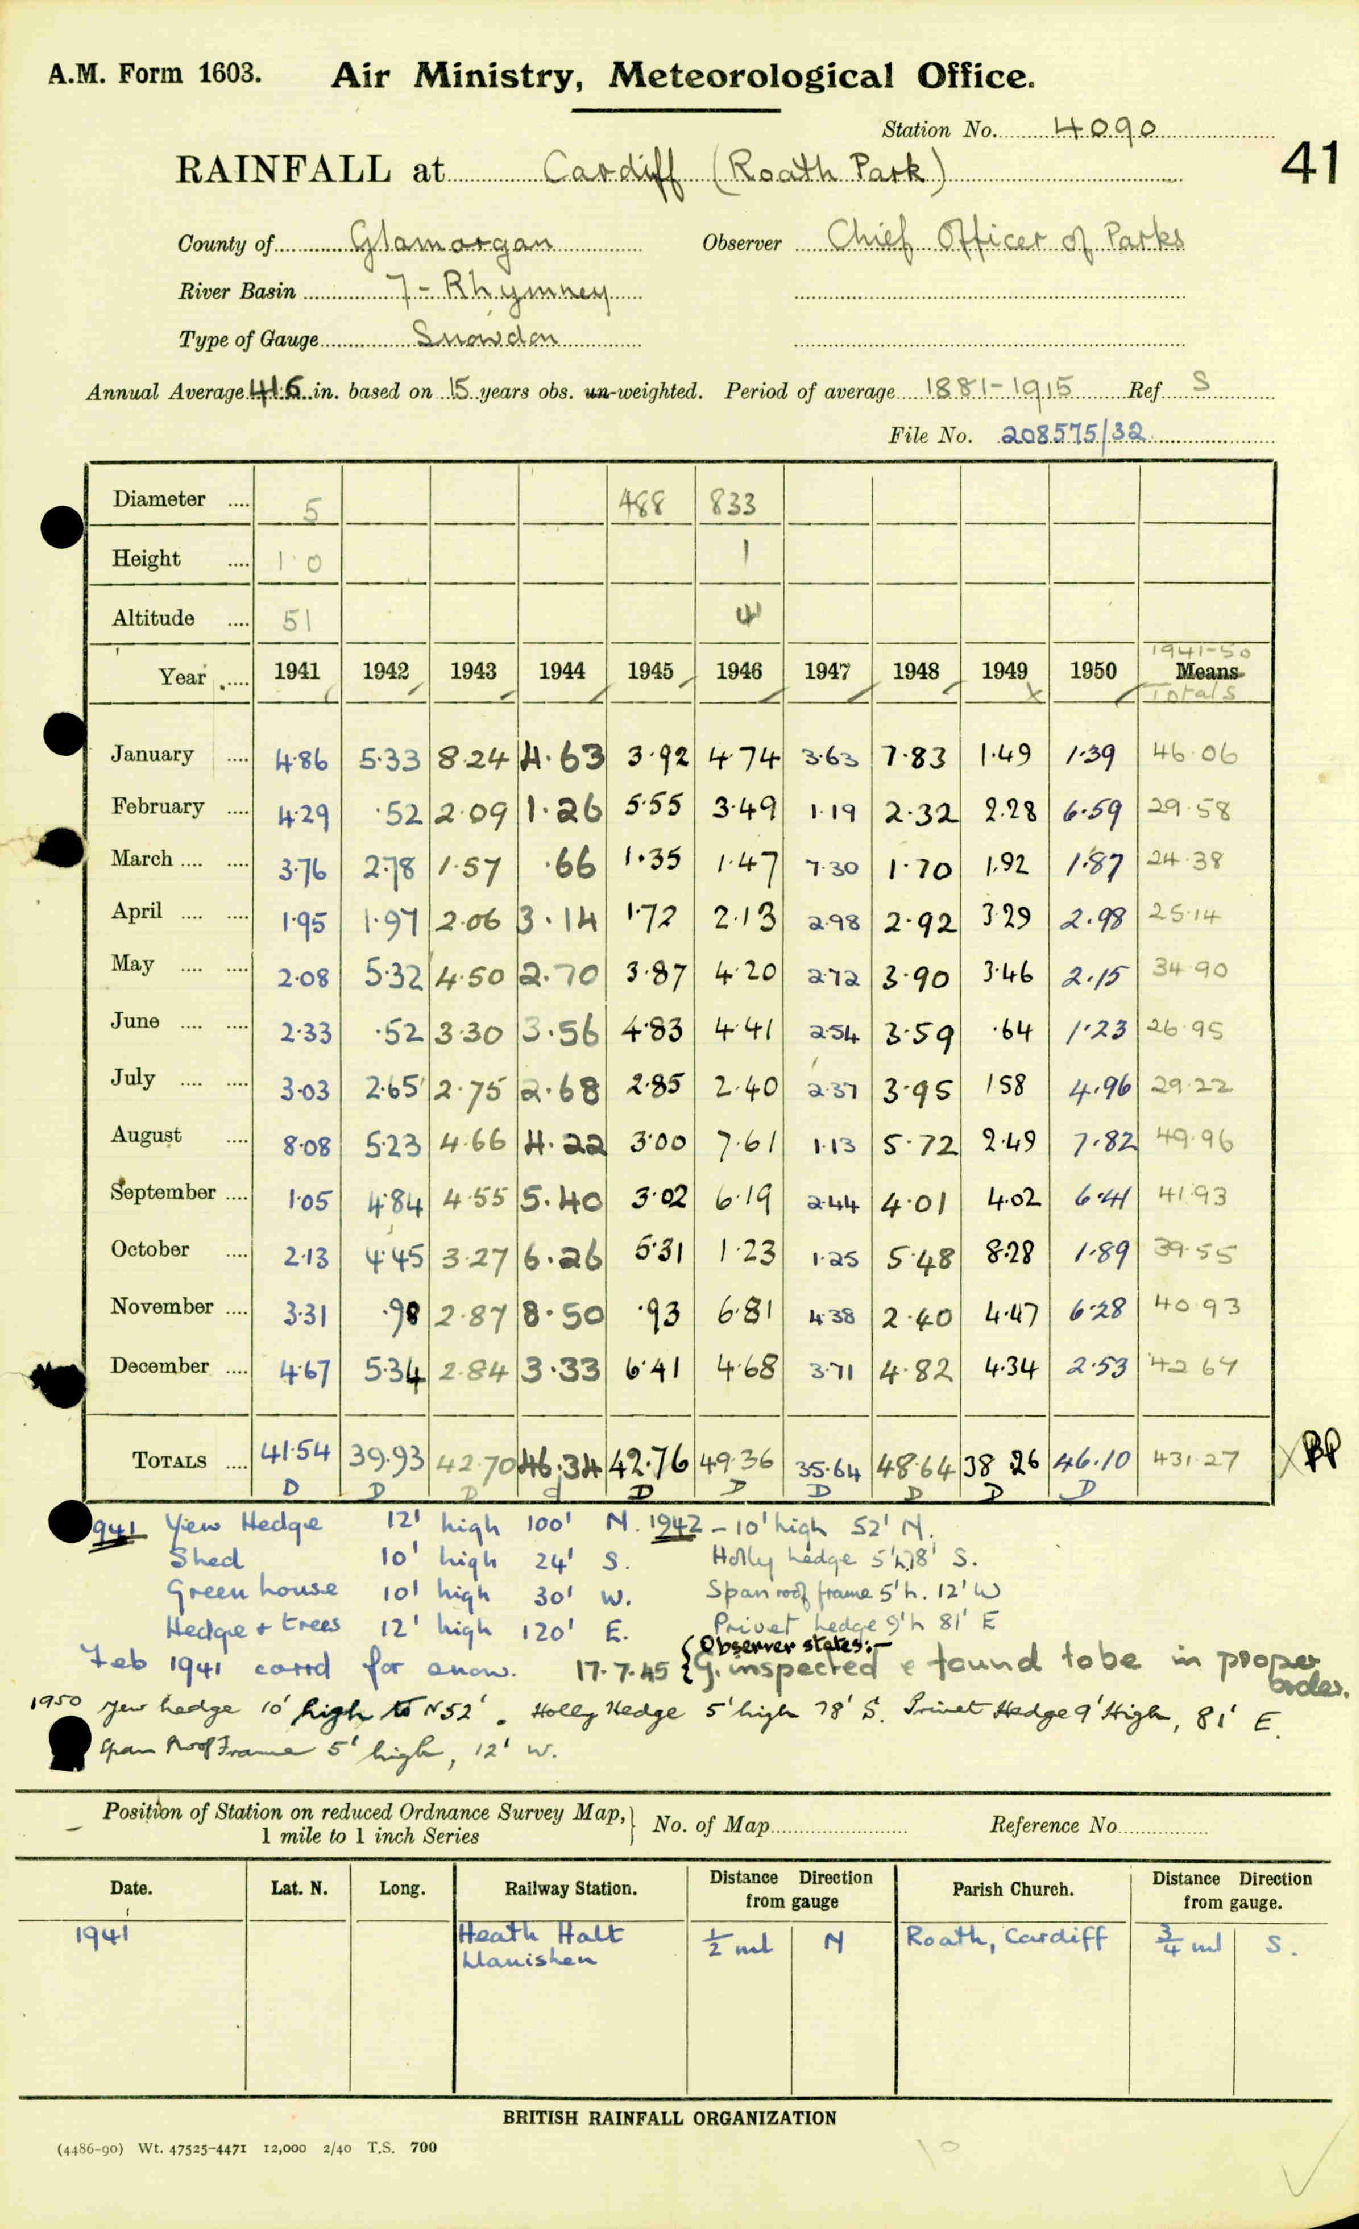 A.M. Form 1603. Air Ministry, Meteorological Office.
Station No. 4090
41
RAINFALL at Cardiff (Roath Park)
County of Glamorgan Observer Chief Officer of Parks
River Basin 7 - Rhymney
Type of Gauge Snowdon
Annual Average 41.6 in. based on 15 years obs. un-weighted. Period of average 1881-1915 Ref S
File No. 208575/32
Diameter .... 5 488 833
Height .... 1.0 1
Altitude .... 51
Year .... 1941 1942 1943 1944 1945 1946 1947 1948 1949 1950 1941-50 Means Totals
January .... 4.86 5.33 8.24 4.63 3.92 4.74 3.63 7.83 1.49 1.39 46.06
February .... 4.29 .52 2.09 1.26 5.55 3.49 1.19 2.32 2.28 6.59 29.58
March .... .... 3.76 2.78 1.57 .66 1.35 1.47 7.30 1.70 1.92 1.87 24.38
April .... .... 1.95 1.97 2.06 3.14 1.72 2.13 2.98 2.92 3.29 2.98 25.14
May .... .... 2.08 5.32 4.50 2.70 3.87 4.20 2.72 3.90 3.46 2.15 34.90
June .... .... 2.33 .52 3.30 3.56 4.83 4.41 2.54 3.59 .64 1.23 26.95
July .... .... 3.03 2.65 2.75 2.68 2.85 2.40 2.37 3.95 1 58 4.96 29.22
August .... 8.08 5.23 4.66 4.22 3.00 7.61 1.13 5.72 2.49 7.82 49.96
September .... 1.05 4.84 4.55 5.40 3.02 6.19 2.44 4.01 4.02 6.41 41.93
October .... 2.13 4.45 3.27 6.26 5.31 1.23 1.25 5.48 8.28 1.89 39.55
November .... 3.31 .98 2.87 8.50 .93 6.81 4.38 2.40 4.47 6.28 40.93
December .... 4.67 5.34 2.84 3.33 6.41 4.68 3.71 4.82 4.34 2.53 42 67
TOTALS .... 41.54 39.93 42.70 46.34 42.76 49.36 35.64 48.64 38.26 46.10 431.27
D D D d D D D D D D
1941 Yew Hedge 12' high 100' N. 1942 - 10' high 52' N.
Shed 10' high 24' S. Holly hedge 5'h 78' S.
Green house 10' high 30' W. Span roof frame 5'h. 12' W
Hedge + trees 12' high 120' E. Privet hedge 9'h 81' E
Feb 1941 corrd for snow. 17.7.45 {Observer states:-
G. inspected & found to be in proper order.
1950 Yew hedge 10' high to N 52'. Holly Hedge 5' high 78' S. Privet Hedge 9' High, 81' E.
Span Roof Frame 5' high, 12' W.
Position of Station on reduced Ordnance Survey Map, 1 mile to 1 inch Series } No. of Map Reference No
Date. Lat. N. Long. Railway Station. Distance Direction from gauge Parish Church. Distance Direction from gauge.
1941 Heath Halt ½ ml N Roath, Cardiff ¾ ml S.
Llanishen
BRITISH RAINFALL ORGANIZATION
(4486-90) Wt. 47525-4471 12,000 2/40 T.S. 700
10